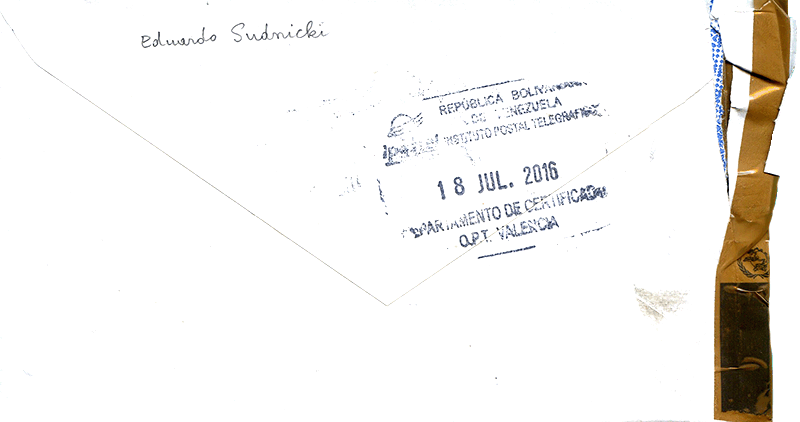 Eduardo Sudnicki
REPÚBLICA BOLIVARIANA
DE VENEZUELA
INSTITUTO POSTAL TELEGRAFICO
18 JUL. 2016
DEPARTAMENTO DE CERTIFICADO
O.P.T. VALENCIA